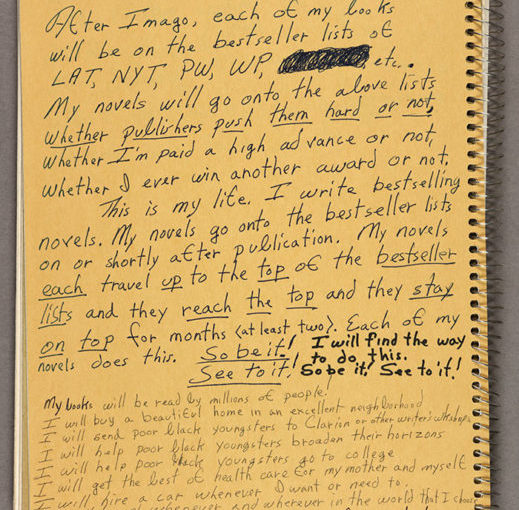 After Imago, each of my books
will be on the bestseller lists of
LAT, NYT, PW, WP, etc..
My novels will go onto the above lists
whether publishers push them hard or not,
whether I'm paid a high advance or not,
whether I ever win another award or not.
This is my life. I write bestselling
novels. My novels go onto the bestseller lists
on or shortly after publication. My novels
each travel up to the top of the bestseller
lists and they reach the top and they stay
on top for months (at least two). Each of my
novels does this. So be it! I will find the way
to do this.
See to it! So be it! See to it!
My books will be read by millions of people!
I will buy a beautiful home in an excellent neighborhood
I will send poor black youngsters to Clarion or other writer's wkshops
I will help poor black youngsters broaden their horizons
I will help poor black youngsters go to college
I will get the best of health care for my mother and myself
I will hire a car whenever I want or need to.
whenever and wherever in the world that I choose